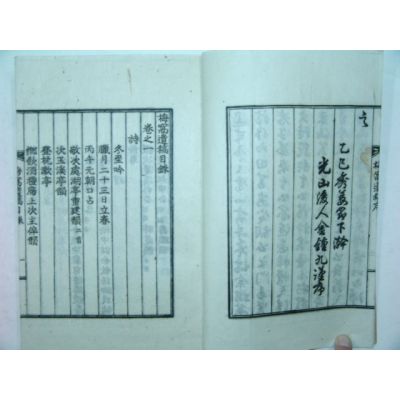 乙巳秀葽節下澣
光山後人金鍾九謹序
梅窩遺稿目錄
卷之一
詩
冬至吟
臘月二十三日立春
丙午元朝口占
敬次處湖亭重建韻二首
次玉溪亭韻
登挹歡亭
秋酒樓席上次主倅韻